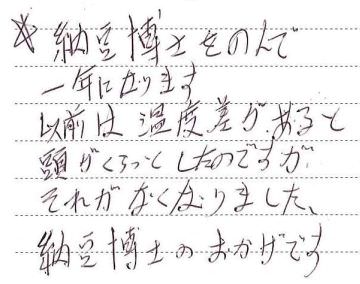 ☆納豆博士をのんで
一年になります
以前は温度差があると
頭がくらっとしたのですが
それがなくなりました、
納豆博士のおかげです